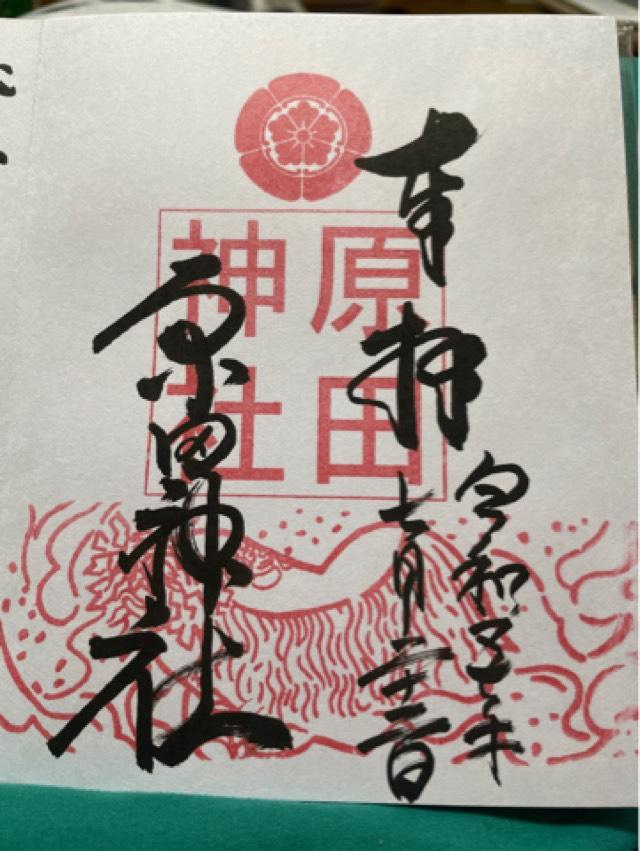 奉拝
令和五年
七月二十二日
原田
神社
原田神社